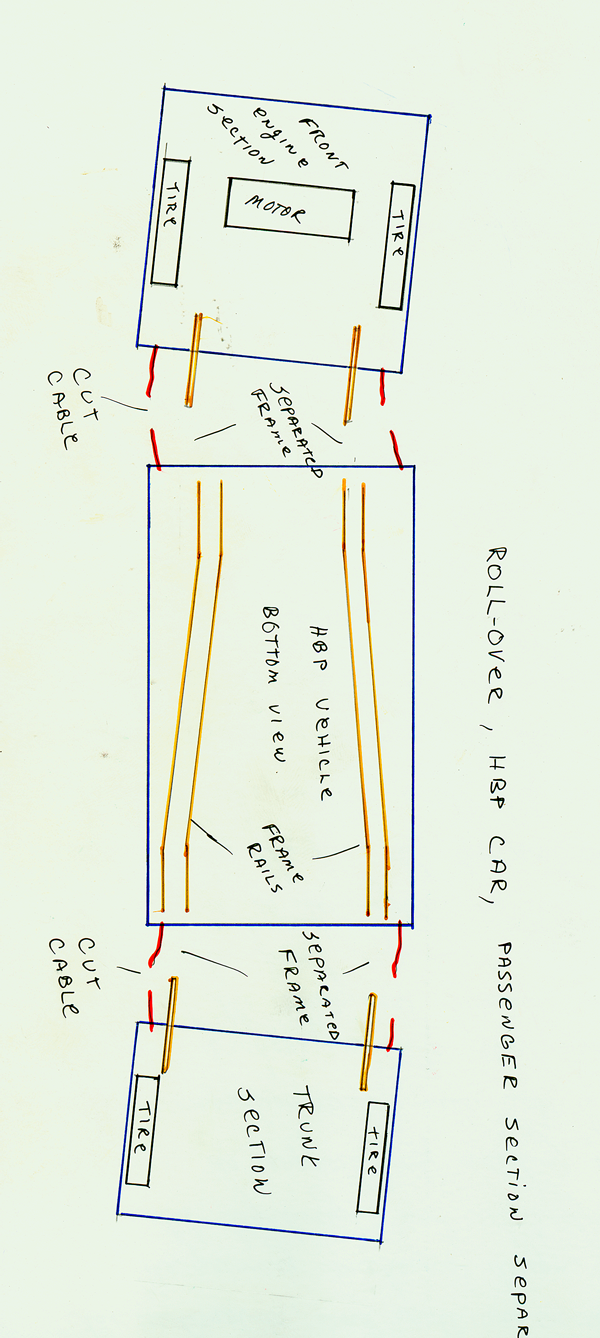 ROLL-OVER, HBP CAR, PASSENGER SECTION SEPAR
FRONT
ENGINE
SECTION
TIRE
MOTOR
TIRE
CUT
CABLE
SEPARATED
FRAME
HBP VEHICLE
BOTTOM VIEW.
FRAME
RAILS
CUT
CABLE
SEPARATED
FRAME
TRUNK
SECTION
TIRE
TIRE